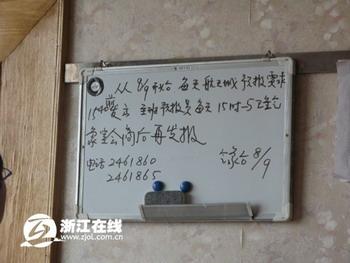 从 8/9 开始 每天航天城预报要求
15时前发出 主班预报员每天 15时-5Z在
家会商后再发报
电话 2461860
2461865
8/9
浙江在线
www.zjol.com.cn